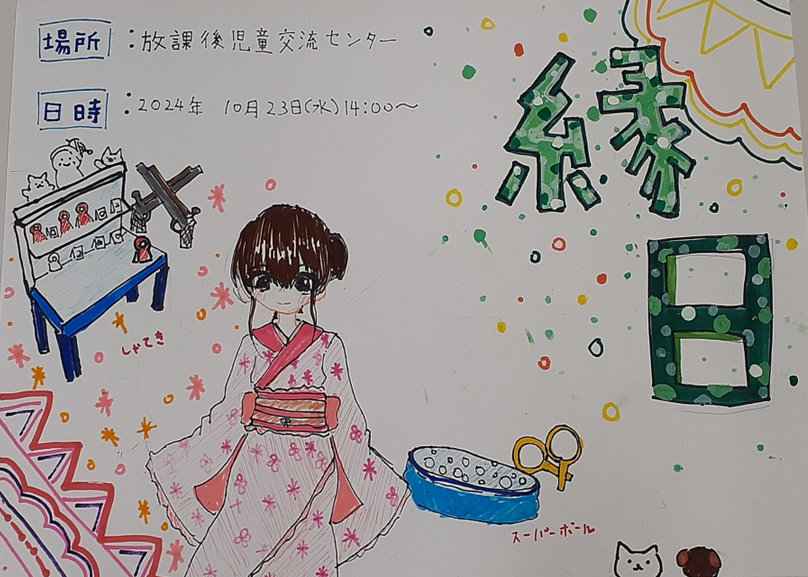 場所：放課後児童交流センター
日時：2024年 10月23日(水)14:00～
縁日
しゃてき
スーパーボール